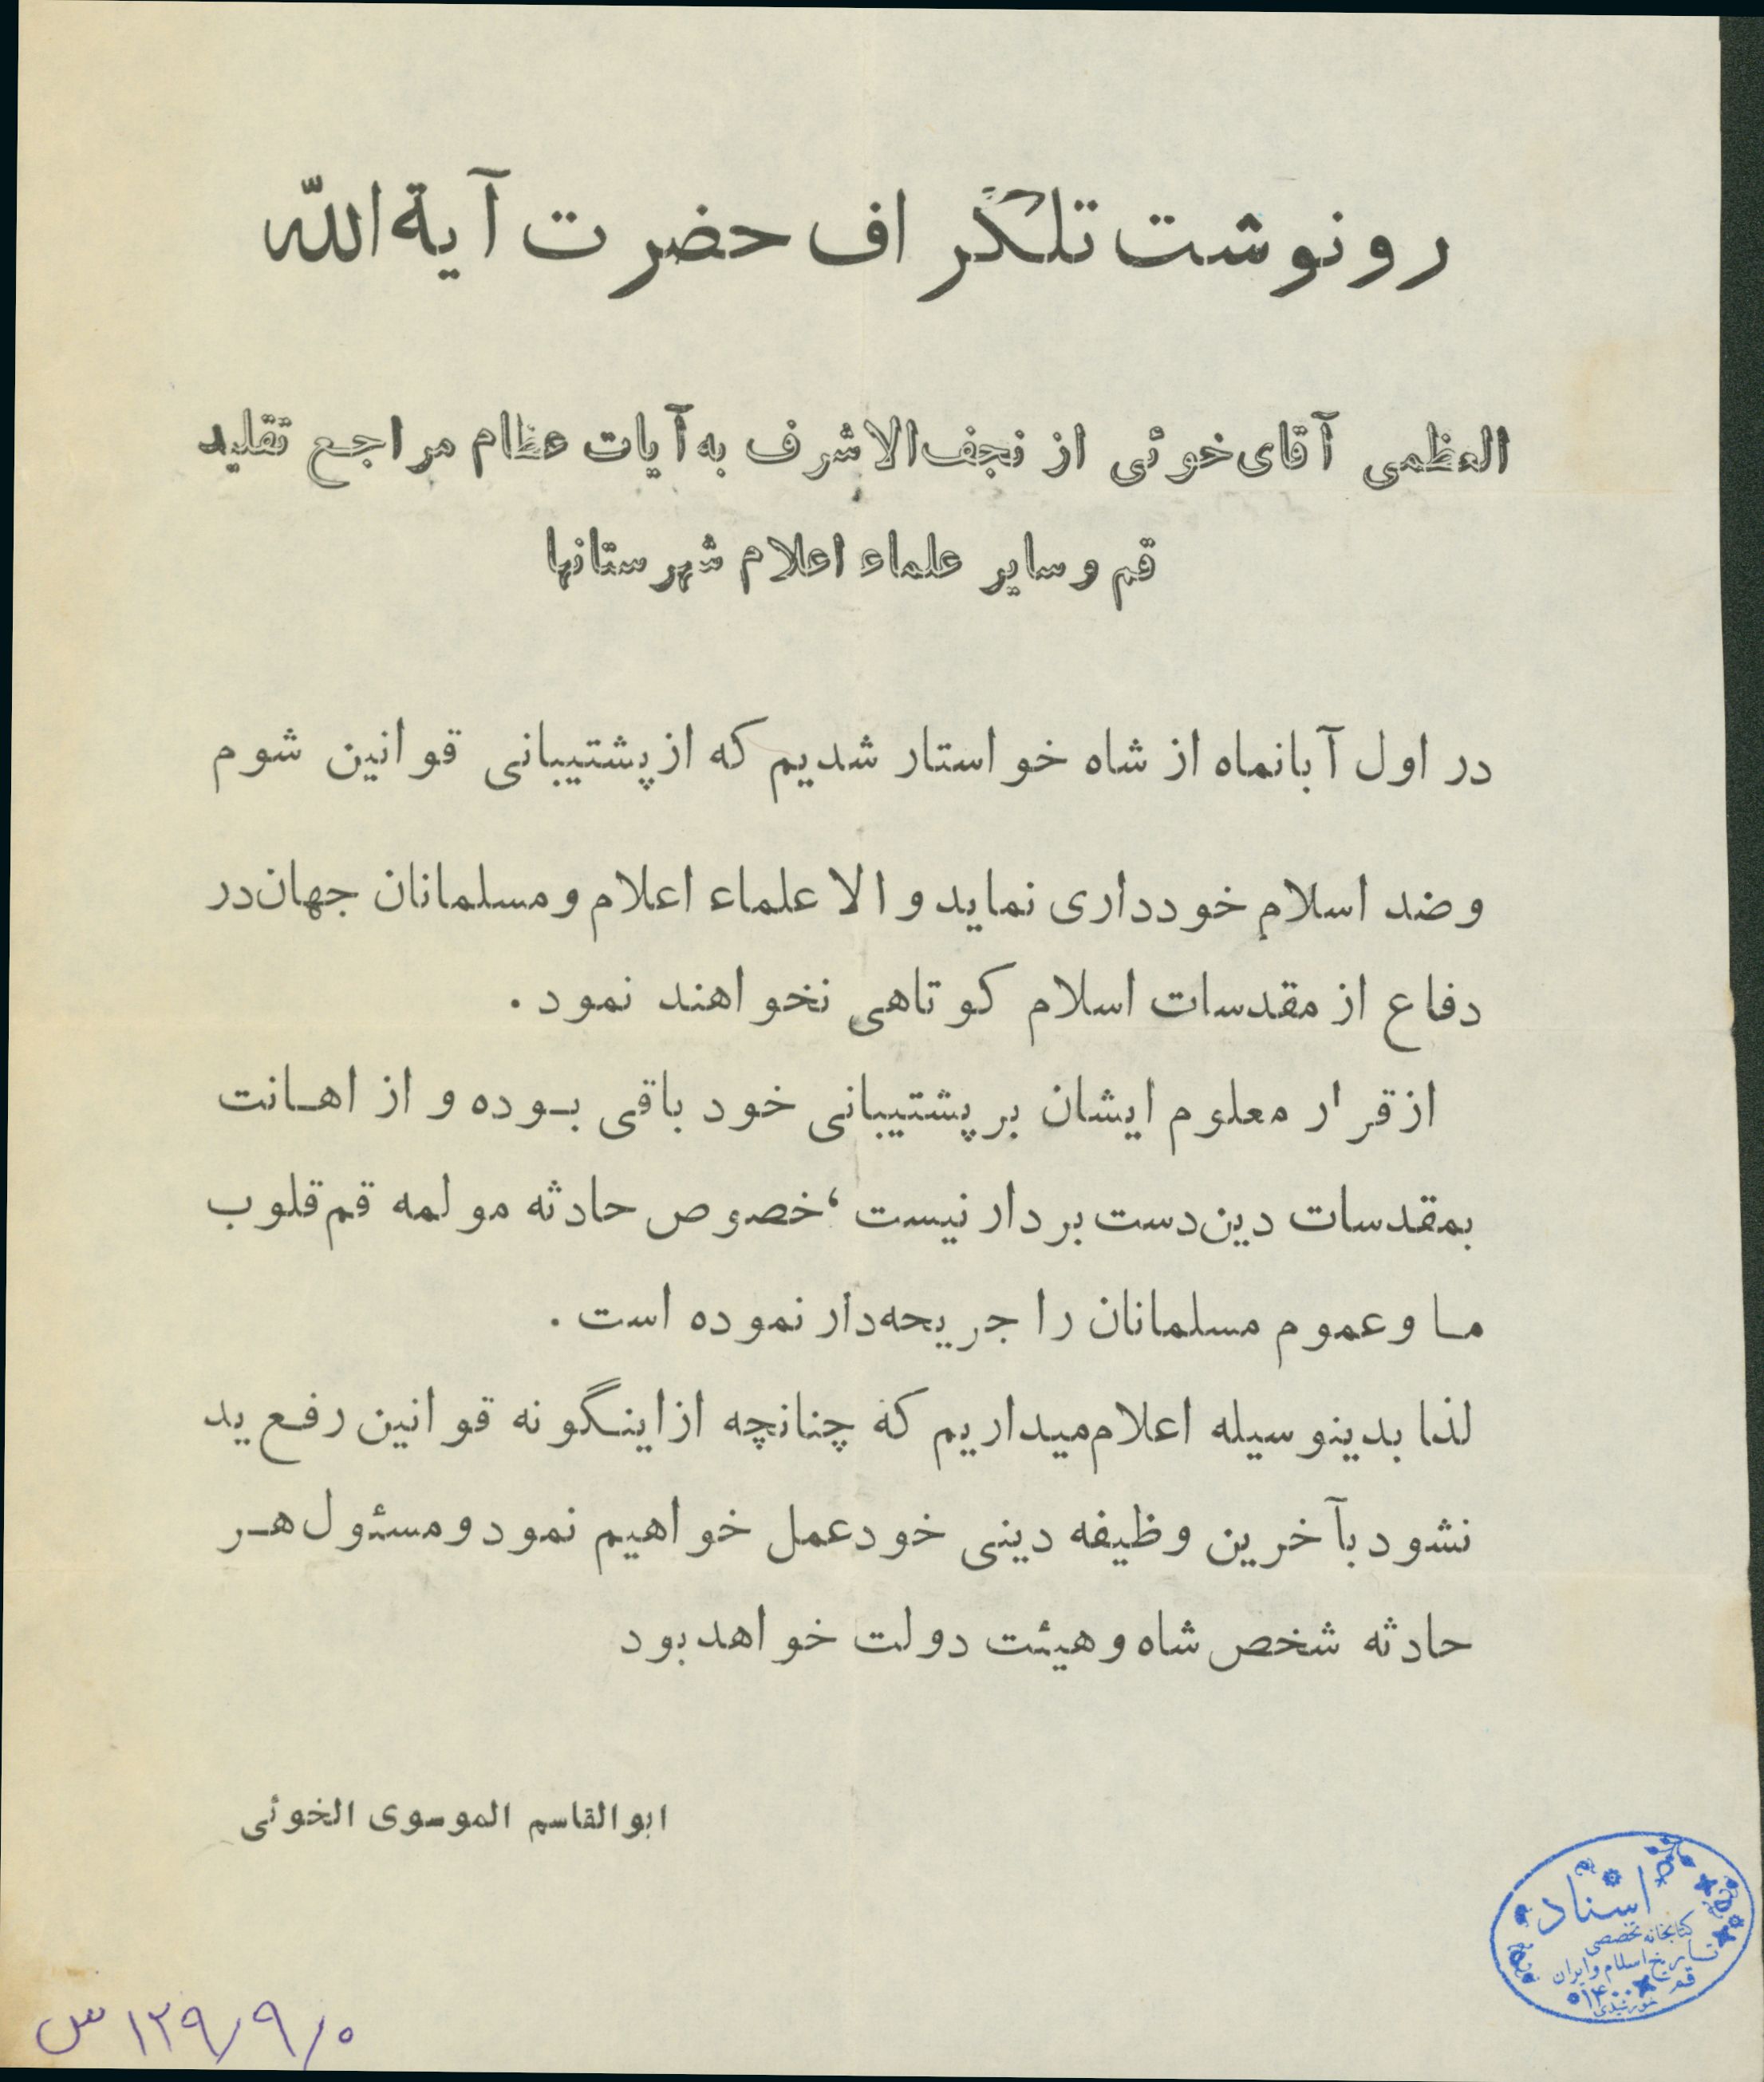 رونوشت تلگراف حضرت آیة‌الله
العظمی آقای خوئی از نجف‌الاشرف به آیات عظام مراجع تقلید
قم و سایر علماء اعلام شهرستانها
در اول آبانماه از شاه خواستار شدیم که از پشتیبانی قوانین شوم
و ضد اسلام خودداری نماید و الا علماء اعلام و مسلمانان جهان در
دفاع از مقدسات اسلام کوتاهی نخواهند نمود .
از قرار معلوم ایشان بر پشتیبانی خود باقی بـوده و از اهـانت
بمقدسات دین دست بردار نیست ، خصوص حادثه مولمه قم قلوب
مـا و عموم مسلمانان را جریحه‌دار نموده است .
لذا بدینوسیله اعلام میداریم که چنانچه از اینگونه قوانین رفـع ید
نشود بآخرین وظیفه دینی خود عمل خواهیم نمود و مسئول هـر
حادثه شخص شاه و هیئت دولت خواهد بود
ابوالقاسم الموسوی الخوئی
اسناد
کتابخانه تخصصی
تاریخ اسلام و ایران
قم ۱۴۰۰
خورشیدی
۱۲۹/۹/۰ س